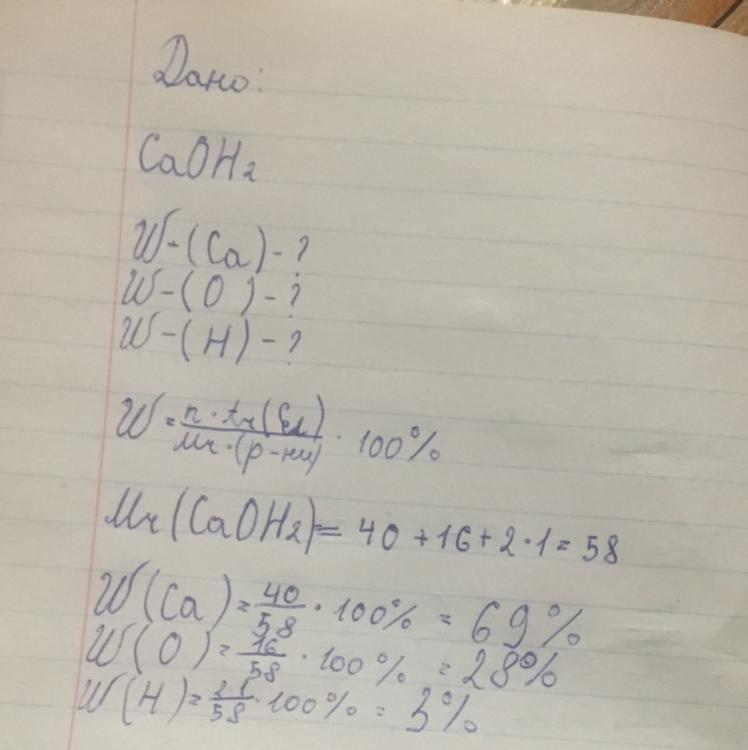 Дано:
CaOH₂
W-(Ca)-?
W-(O)-?
W-(H)-?
W = n · Ar(Эл) / Mr·(р-ни) · 100%
Mr(CaOH₂) = 40 + 16 + 2·1 = 58
W(Ca) = 40/58 · 100% = 69%
W(O) = 16/58 · 100% = 28%
W(H) = 2·1/58 · 100% = 3%